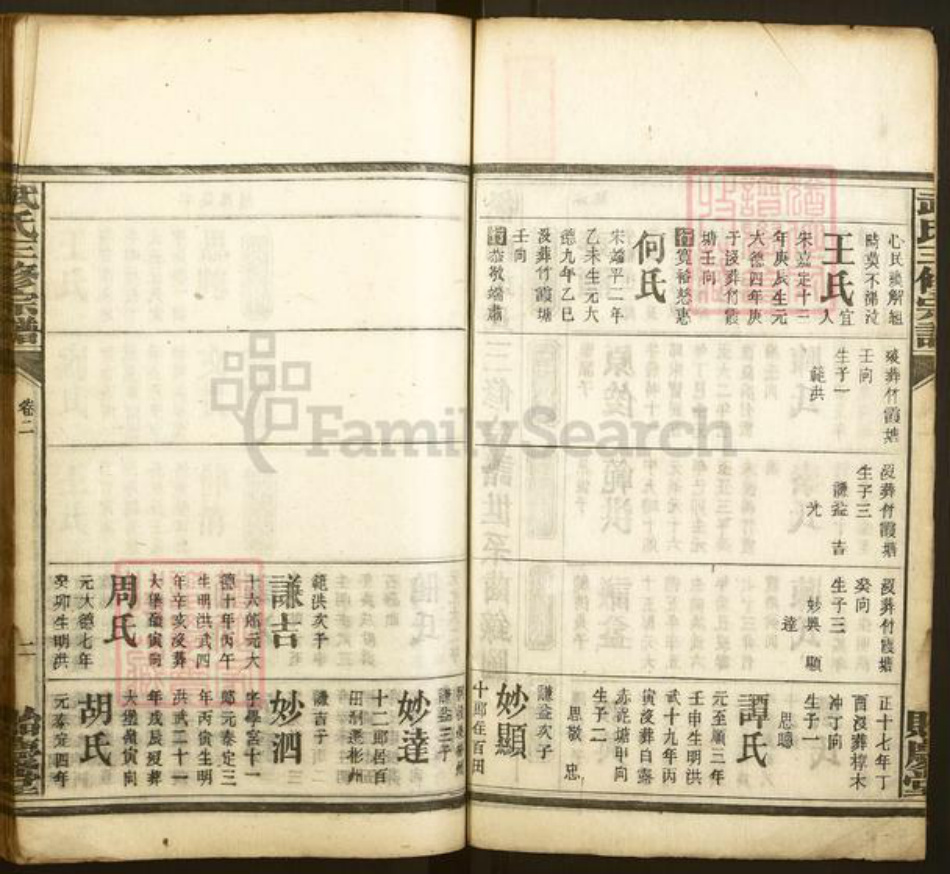 武氏三修宗譜
貽慶堂
心民
解組
時莫不涕泣
王氏
宜人
宋嘉定十三
年庚辰生元
大德四年庚
子歿葬竹霞
塘壬向
行寬裕慈惠
何氏
宋端平二年
乙未生元大
德九年乙巳
歿葬竹霞塘
壬向
行恭敬端肅
歿葬竹霞塘
壬向
生子一
範洪
歿葬竹霞塘
生子三
謙益 吉
光
歿葬竹霞塘
癸向
生子三
妙興 顯
達
正十七年丁
酉歿葬樟木
冲丁向
生子一
思聰
譚氏
元至順三年
壬申生明洪
武十九年丙
寅歿葬白露
塘甲向
生子二
思敬 忠
謙益次子
妙顯
十郎在百田
謙益三子
妙達
十二郎居百
田割遷彬州
範洪次子
謙吉
十六郎元大
德十年丙午
生明洪武四
年辛亥歿葬
大堡嶺寅向
周氏
元大德七年
癸卯生明洪
謙吉子
妙泗
字學宮十一
郎元泰定三
年丙寅生明
洪武二十一
年戊辰歿葬
大堡嶺寅向
胡氏
元泰定四年
武氏三修宗譜
卷二
二
貽慶堂
FamilySearch